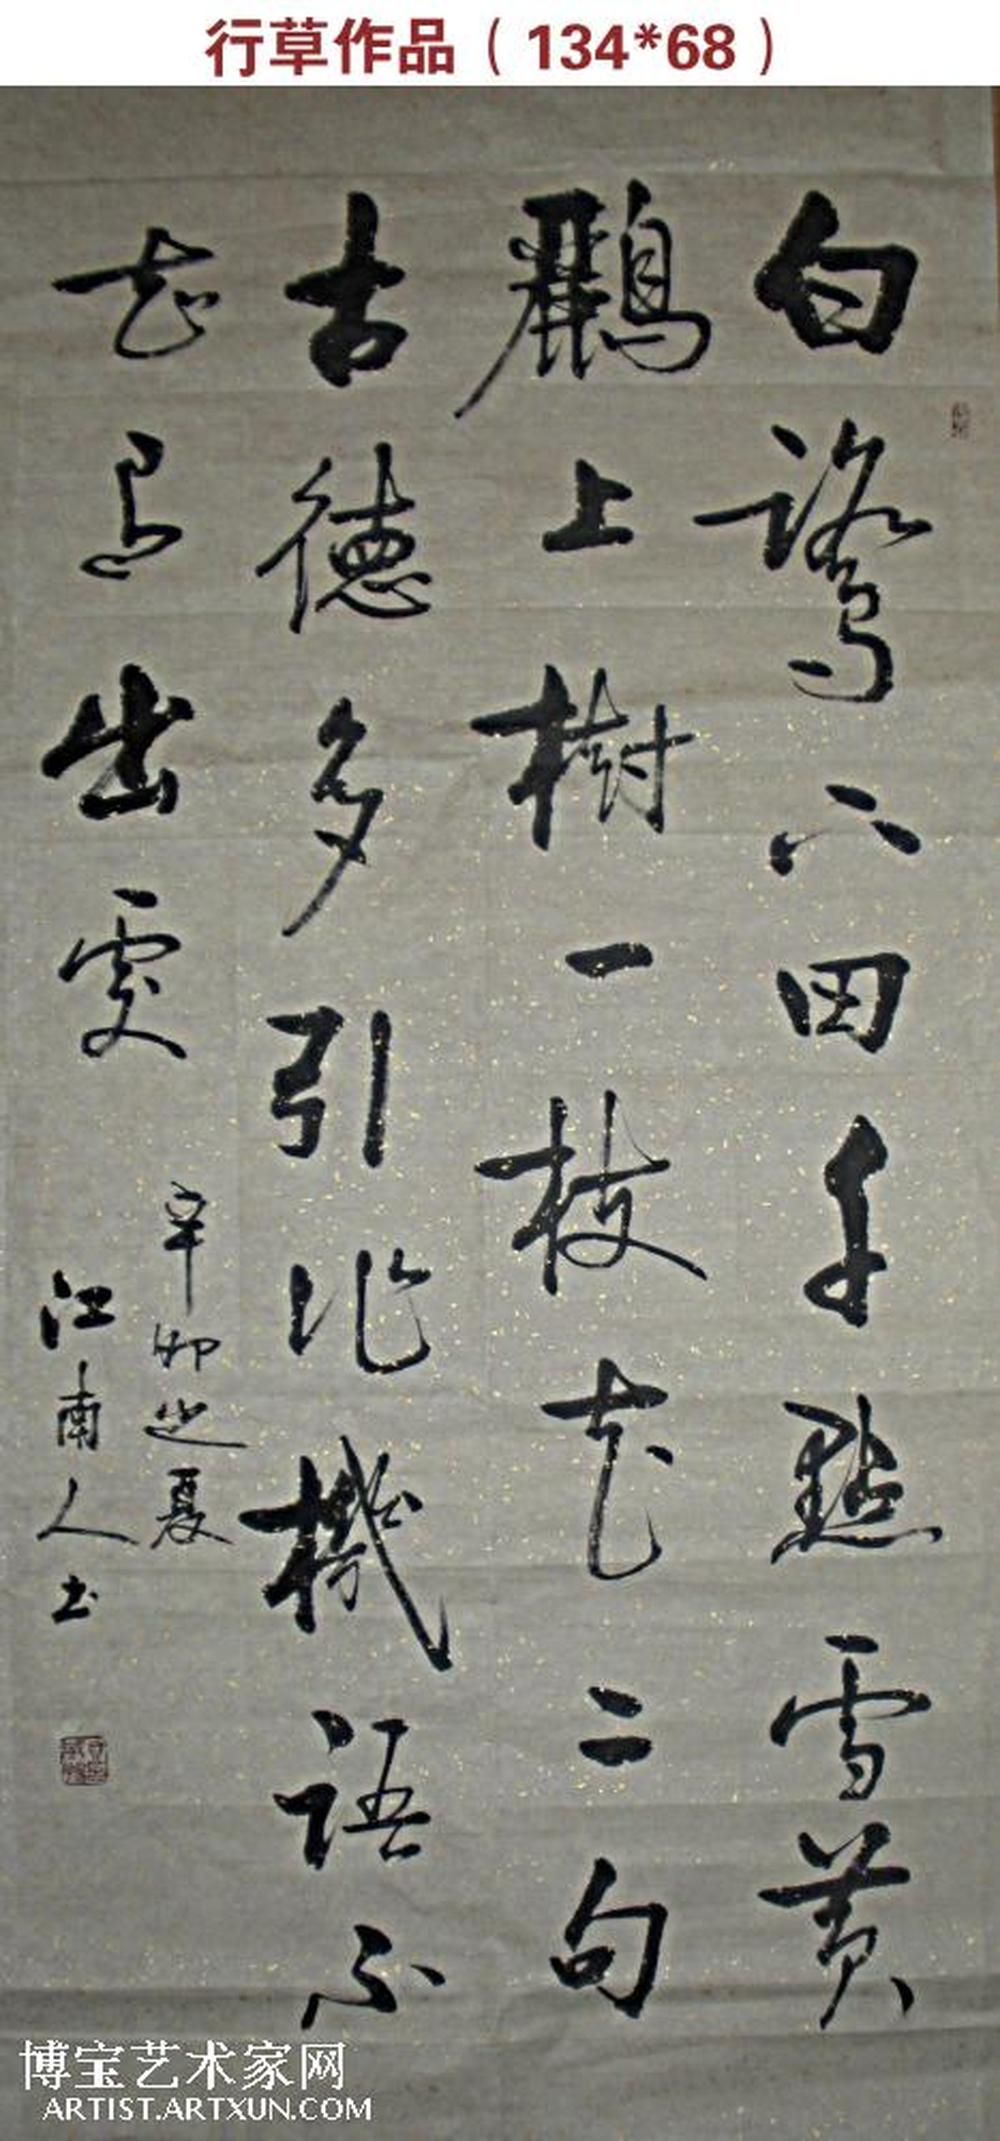 行草作品（134*68）
白鷺下田千點雪黄
鸝上樹一枝花二句
古德多引作機語不
知是出處
辛卯之夏
江南人书
博宝艺术家网
ARTIST.ARTXUN.COM